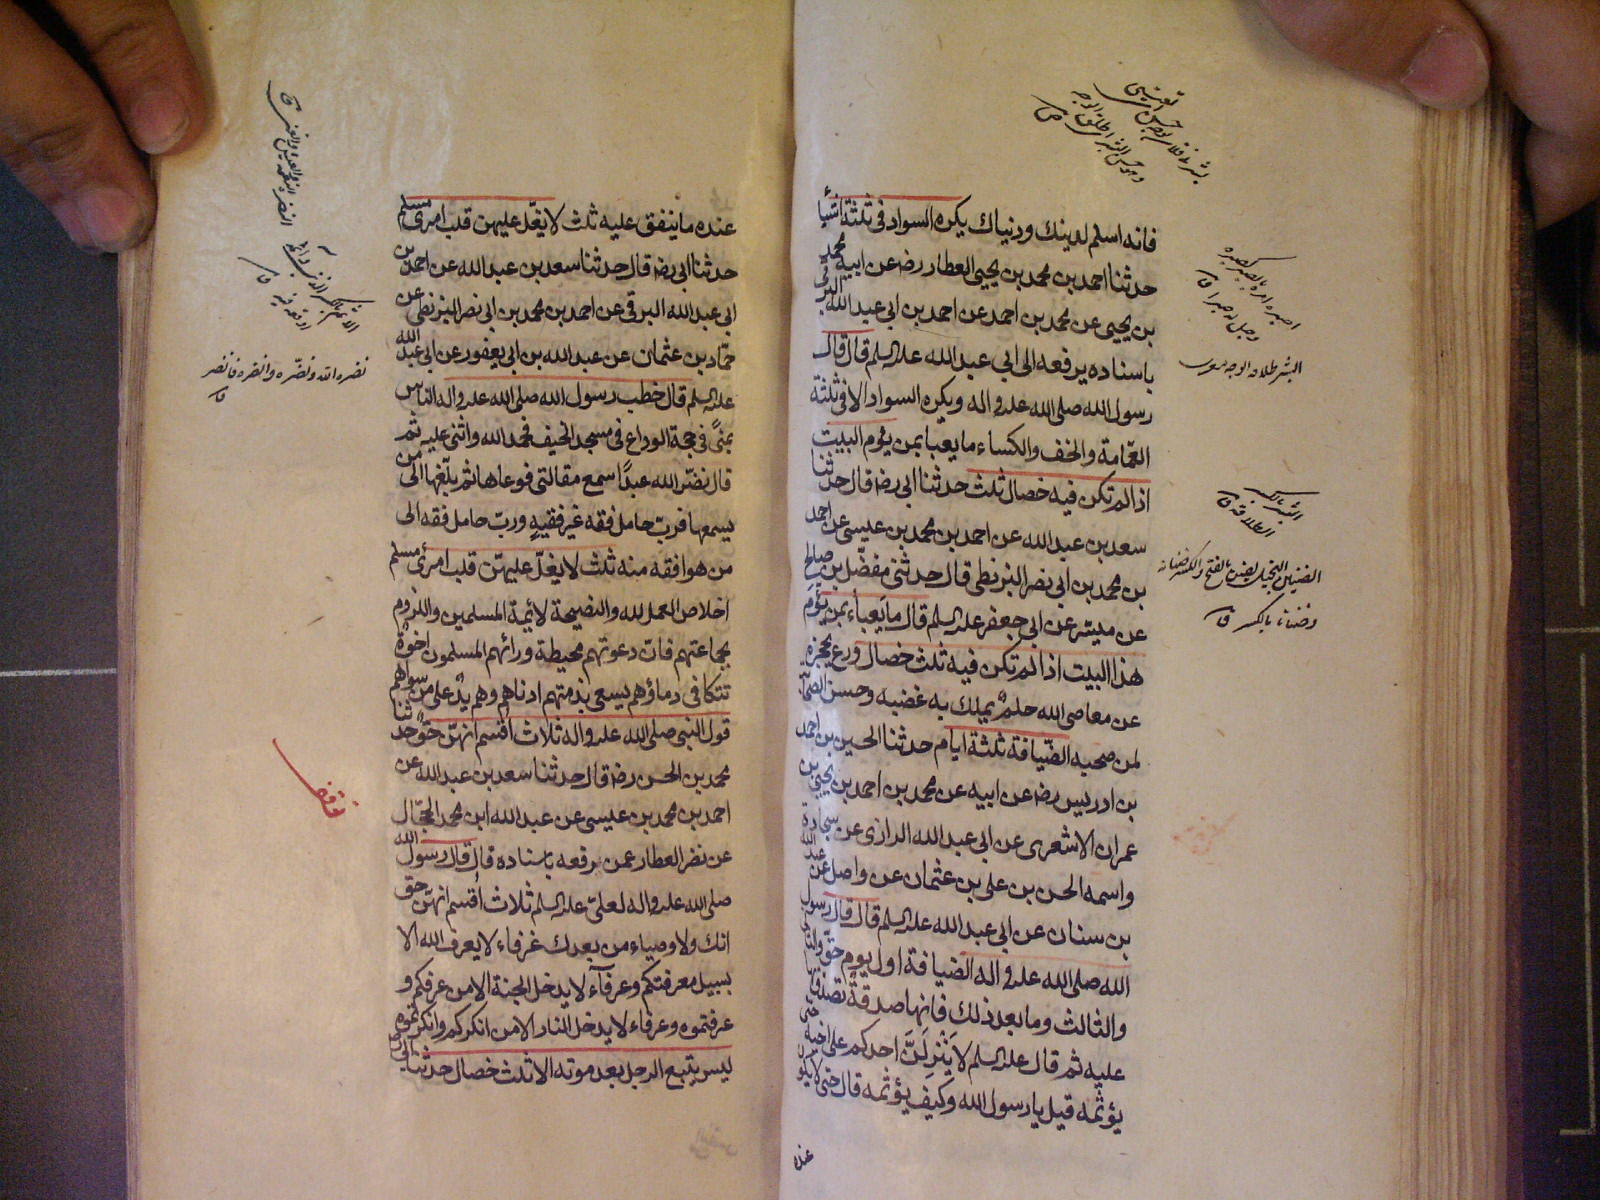 فانه اسلم لدينك ودنياك يكره السواد فى ثلثة اشيا
حدثنا احمد بن محمد بن يحيى العطار رضه عن ابيه محمد
بن يحيى عن محمد بن احمد عن احمد بن ابى عبد الله البرقى
باسناده يرفعه الى ابى عبد الله عليه السلم قال قال
رسول الله صلى الله عليه واله ويكره السواد الا فى ثلثة
العمامة والخف والكساء ما يعبا بمن يؤم البيت
اذا لم تكن فيه خصال ثلث حدثنا ابى رضه قال حدثنا
سعد بن عبد الله عن احمد بن محمد بن عيسى عن احمد
بن محمد بن ابى نصر البزنطى قال حدثنى مفضل بن صلح
عن ميسر عن ابى جعفر عليه السلم قال ما يعبأ بمن يؤم
هذا البيت اذا لم تكن فيه ثلث خصال ورع يحجزه
عن معاصى الله حلم يملك به غضبه وحسن الصحابة
لمن صحبه الضيافة ثلثة ايام حدثنا الحسين بن احمد
بن ادريس رضه عن ابيه عن محمد بن احمد بن يحيى بن
عمران الاشعرى عن ابى عبد الله الرازى عن سجادة
واسمه الحسن بن على بن عثمان عن واصل عن عبد الله
بن سنان عن ابى عبد الله عليه السلم قال قال رسول
الله صلى الله عليه واله الضيافة اول يوم حق والثانى
والثالث وما بعد ذلك فانها صدقة تصدق بها
عليه ثم قال عليه السلم لا ينزلن احدكم على اخيه حتى
يؤثمه قيل يا رسول الله وكيف يؤثمه قال حتى لا يكون
عنده
البشر طلاقة الوجه
الضنين البخيل يضن بالفتح والكسر ضنانة
وضنانا بالكسر ق
عنده ما ينفق عليه ثلث لا يغل عليهن قلب امرئ مسلم
حدثنا ابى رضه قال حدثنا سعد بن عبد الله عن احمد بن
ابى عبد الله البرقى عن احمد بن محمد بن ابى نصر البزنطى عن
حماد بن عثمان عن عبد الله بن ابى يعفور عن ابى عبد الله
عليه السلم قال خطب رسول الله صلى الله عليه واله الناس
بمنى فى حجة الوداع فى مسجد الخيف فحمد الله واثنى عليه ثم
قال نضر الله عبدا سمع مقالتى فوعاها ثم بلغها الى من
يسمعها فرب حامل فقه غير فقيه ورب حامل فقه الى
من هو افقه منه ثلث لا يغل عليهن قلب امرئ مسلم
اخلاص العمل لله والنصيحة لائمة المسلمين واللزوم
بجماعتهم فان دعوتهم محيطة ورائهم المسلمون اخوة
تتكافى دماؤهم يسعى بذمتهم ادناهم وهم يد على من سواهم
قول النبى صلى الله عليه واله ثلاث اقسم انهن حق حدثنا
محمد بن الحسن رضه قال حدثنا سعد بن عبد الله عن
احمد بن محمد بن عيسى عن عبد الله ابن محمد الحجال
عن نصر العطار عمن يرفعه باسناده قال قال رسول الله
صلى الله عليه واله لعلى عليه السلم ثلاث اقسم انهن حق
انك ولاوصياء من بعدك عرفاء لا يعرف الله الا
بسبيل معرفتكم وعرفآء لا يدخل الجنة الا من عرفكم و
عرفتموه وعرفاء لا يدخل النار الا من انكركم وانكرتموه
ليس يتبع الرجل بعد موته الا ثلث خصال حدثنا ابى رضه
نضره الله ونضره وانضره فانضر
ق